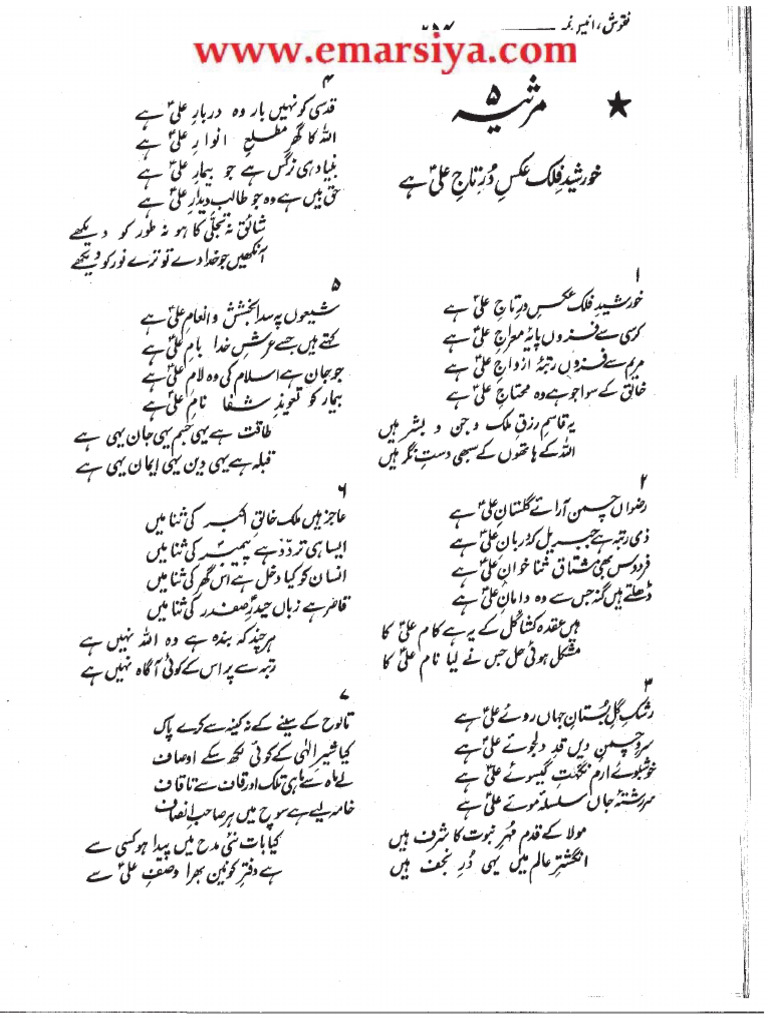 نقوش، انیس نمبر
www.emarsiya.com
مرثیہ ۵
خورشیدِ فلک عکسِ دُرِ تاجِ علیؑ ہے
۱
خورشیدِ فلک عکسِ درِ تاجِ علیؑ ہے
کرسی سے فزوں پایۂ معراجِ علیؑ ہے
مریم سے فزوں رتبۂ ازواجِ علیؑ ہے
خالق کے سوا جو ہے وہ محتاجِ علیؑ ہے
یہ قاسمِ رزقِ ملک و جن و بشر ہیں
اللہ کے ہاتھوں کے سبھی دستِ نگر ہیں
۲
رضواں چمن آرائے گلستانِ علیؑ ہے
ذی رتبہ ہے جبریل کہ دربانِ علیؑ ہے
فردوس بھی مشتاقِ ثنا خوانِ علیؑ ہے
ڈھلتے ہیں گنہ جس سے وہ دامانِ علیؑ ہے
ہیں عقدہ کشا کل کے یہ ہے کام علیؑ کا
مشکل ہوئی حل جس نے لیا نام علیؑ کا
۳
رشکِ گلِ بستانِ جہاں روئے علیؑ ہے
سروِ چمنِ دیں قدِ دلجوئے علیؑ ہے
خوشبوئے ارم نگہتِ گیسوئے علیؑ ہے
سررشتۂ جاں سلسلۂ موئے علیؑ ہے
مولا کے قدم مُہرِ نبوت کا شرف ہیں
انگشترِ عالم میں یہی دُرِ نجف ہیں
۴
قدسی کو نہیں بار وہ دربارِ علیؑ ہے
اللہ کا گھر مطلعِ انوارِ علیؑ ہے
بنیاد ہی نرگس ہے جو بیمارِ علیؑ ہے
حق بیں ہے وہ جو طالبِ دیدارِ علیؑ ہے
شائق نہ تجلّی کا ہو نہ طور کو دیکھے
آنکھیں جو خدا دے تو ترے نور کو دیکھے
۵
شیعوں پہ سدا بخشش و انعامِ علیؑ ہے
کہتے ہیں جسے عرشِ خدا بامِ علیؑ ہے
جو جان ہے اسلام کی وہ لامِ علیؑ ہے
بیمار کو تعویذِ شفا نامِ علیؑ ہے
طاقت ہے یہی جسم یہی جان یہی ہے
قبلہ ہے یہی دین یہی ایمان یہی ہے
۶
عاجز ہیں ملک خالقِ اکبر کی ثنا میں
ایسا ہی تردّد ہے پیمبرؐ کی ثنا میں
انسان کو کیا دخل ہے اس گھر کی ثنا میں
قاصر ہے زباں حیدرِؑ صفدر کی ثنا میں
ہر چند کہ بندہ ہے وہ اللہ نہیں ہے
رتبہ سے پر اس کے کوئی آگاہ نہیں ہے
۷
تا لوح کے سینے کے نہ کینہ سے کرے پاک
کیا شیرِ الٰہی کے کوئی لکھ سکے اوصاف
لے ماہ سے ماہی تلک اور قاف سے تا قاف
خامہ لیے ہے سوچ میں ہر صاحبِ انصاف
کیا بات نئی مدح میں پیدا ہو کسی سے
ہے دفترِ کونین بھرا وصفِ علیؑ سے